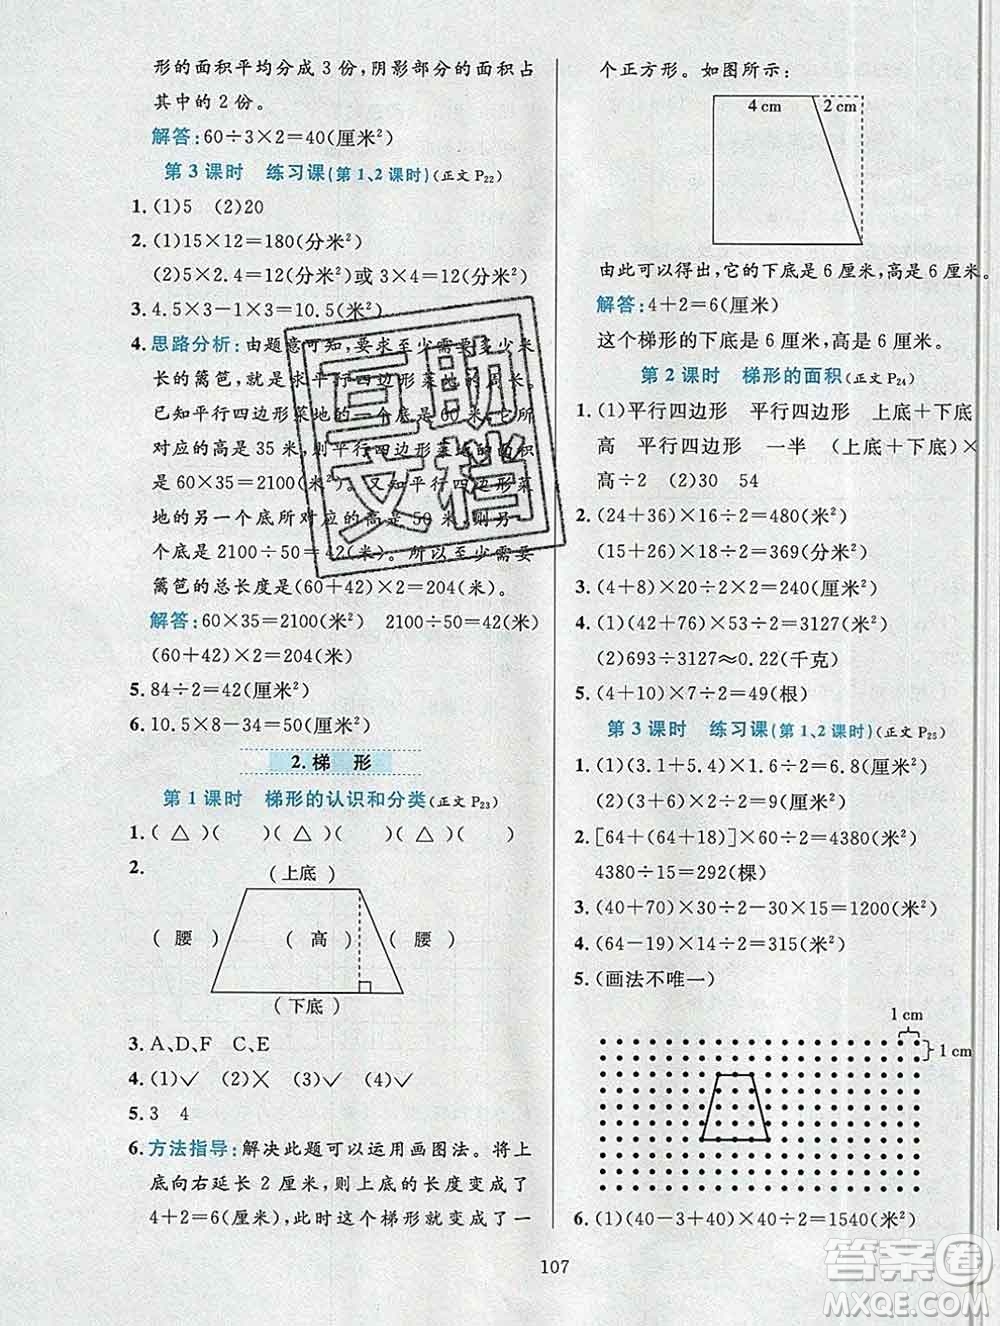 形的面积平均分成 3 份，阴影部分的面积占
其中的 2 份。
解答：60÷3×2=40(厘米²)
第 3 课时　练习课(第 1、2 课时)(正文 P22)
1. (1)5　(2)20
2. (1)15×12=180(分米²)
(2)5×2.4=12(分米²)或 3×4=12(分米²)
3. 4.5×3-1×3=10.5(米²)
4. 思路分析：由题意可知，要求至少需要多少米
长的篱笆，就是求平行四边形菜地的周长。
已知平行四边形菜地的一个底是 60 米，所
对应的高是 35 米，则平行四边形菜地的面积
是 60×35=2100(米²)。又知平行四边形菜
地的另一个底所对应的高是 50 米，则另一
个底是 2100÷50=42(米)。所以至少需要
篱笆的总长度是(60+42)×2=204(米)。
解答：60×35=2100(米²)　2100÷50=42(米)
(60+42)×2=204(米)
5. 84÷2=42(厘米²)
6. 10.5×8-34=50(厘米²)
2. 梯　形
第 1 课时　梯形的认识和分类(正文 P23)
1. (△)(　)(△)(　)(△)(　)
2.
(上底)
(腰)　(高)　(腰)
(下底)
3. A、D、F　C、E
4. (1)✓　(2)×　(3)✓　(4)✓
5. 3　4
6. 方法指导：解决此题可以运用画图法。将上
底向右延长 2 厘米，则上底的长度变成了
4+2=6(厘米)，此时这个梯形就变成了一
个正方形。如图所示：
4 cm　2 cm
由此可以得出，它的下底是 6 厘米，高是 6 厘米。
解答：4+2=6(厘米)
这个梯形的下底是 6 厘米，高是 6 厘米。
第 2 课时　梯形的面积(正文 P24)
1. (1)平行四边形　平行四边形　上底+下底
高　平行四边形　一半　(上底+下底)×
高÷2　(2)30　54
2. (24+36)×16÷2=480(米²)
(15+26)×18÷2=369(分米²)
3. (4+8)×20÷2×2=240(厘米²)
4. (1)(42+76)×53÷2=3127(米²)
(2)693÷3127≈0.22(千克)
5. (4+10)×7÷2=49(根)
第 3 课时　练习课(第 1、2 课时)(正文 P25)
1. (1)(3.1+3.7)×2÷2=6.8(厘米²)
(2)(3+6)×2÷2=9(厘米²)
2. [64+(64+18)]×60÷2=4380(米²)
4380÷15=292(棵)
3. (40+70)×30÷2-30×15=1200(米²)
4. (64-19)×14÷2=315(米²)
5. (画法不唯一)
1 cm
1 cm
6. (1)(40-3+40)×40÷2=1540(米²)
107
互助
文档
答案圈
MXQE.COM